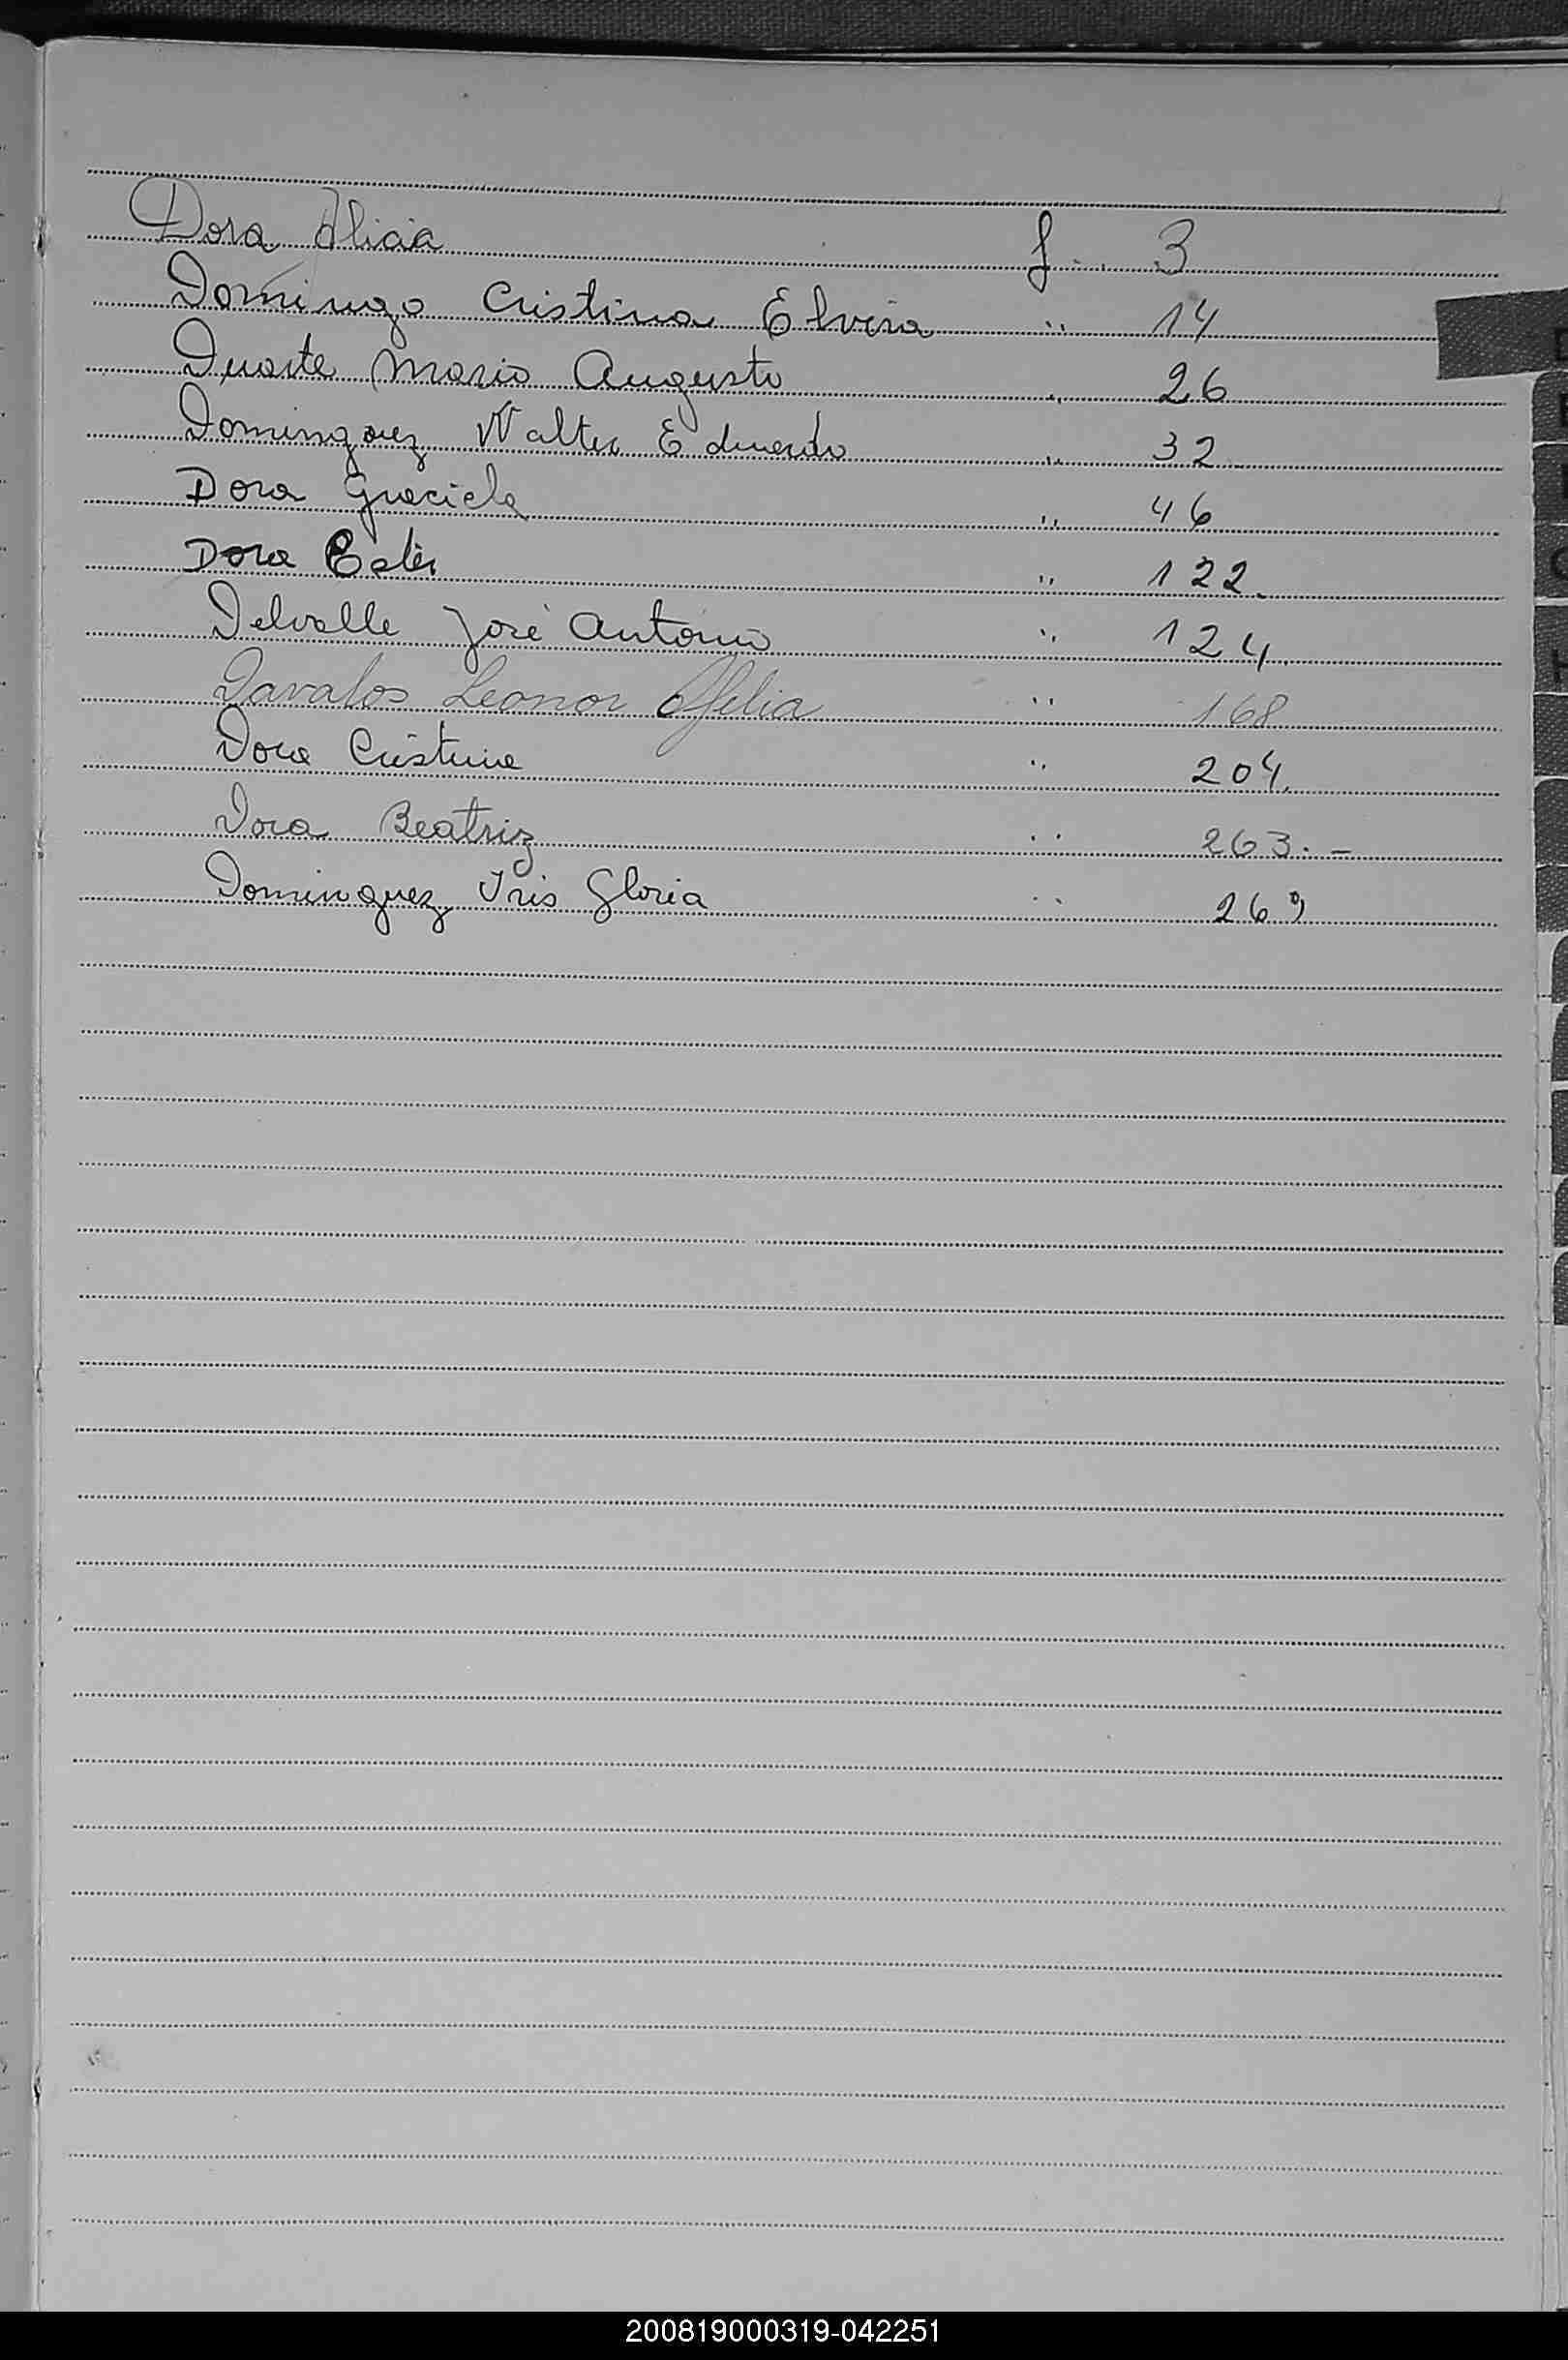 Dora Alicia f. 3
Domingo Cristina Elvira " 14
Duarte Mario Augusto " 26
Dominguez Walter Eduardo " 32
Dora Graciela " 46
Dora Ester " 122.
Delvalle José Antonio " 124.
Davalos Leonor Ofelia " 168
Dora Cristina " 204.
Dora Beatriz " 263.-
Dominguez Iris Gloria " 269
200819000319-042251